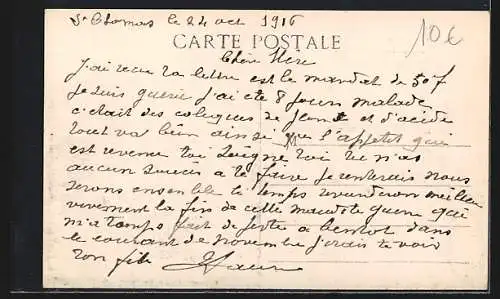 St Thomas le 24 oct 1916
10€
CARTE POSTALE
Chère Mère
J'ai recu ta lettre et le mandat de 50 f
je suis guerie j'ai ete 8 jours malade
c'etait des coliques de et d'acide
tout va bien ainsi que l'appetit qui
est revenu toi soigne toi tu n'as
aucun a te faire je nous
serons ensemble le temps meilleur
vivement la fin de cette maudite guerre qui
m'a fait de a bientot dans
le courant de novembre j'irais te voir
ton fils